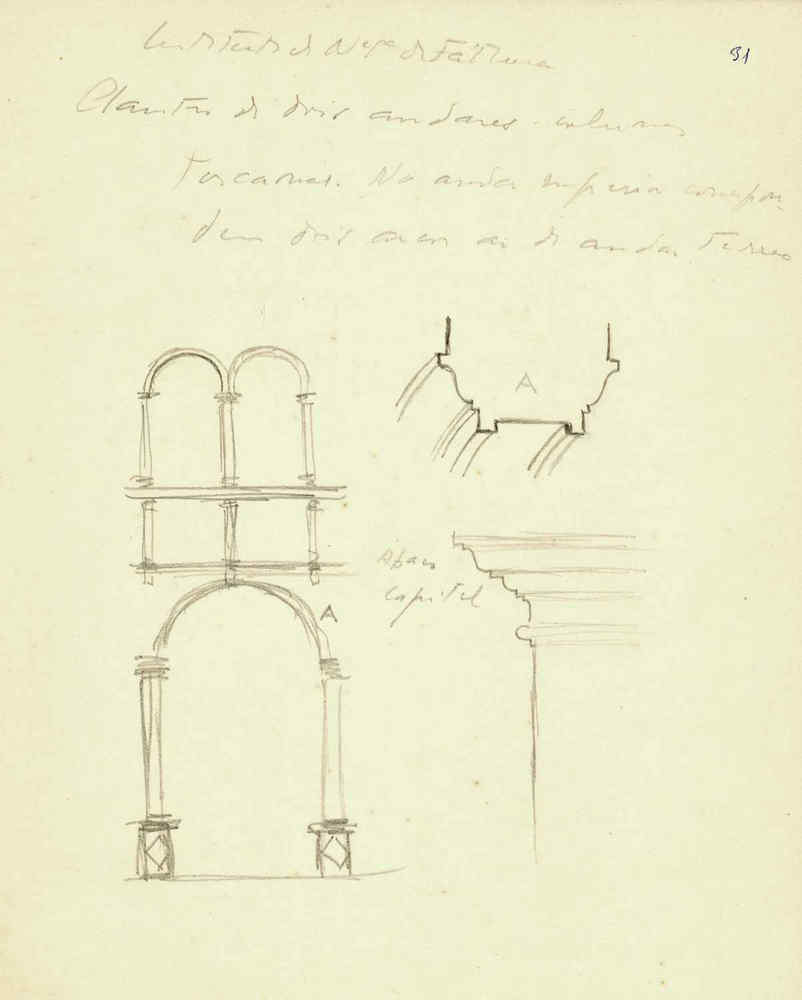 31
Instituto de N. Sra de Fátima
Claustro de dois andares - colunas
Toscanas. No andar superior correspon-
dem dois arcos ao do andar Terreo
A
capitel
A